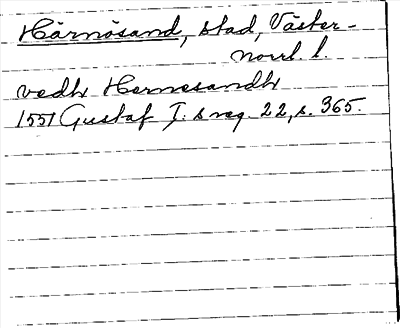 Härnösand, stad, Väster-
norrl. l.
vedh Hernesandh
1551 Gustaf I:s reg. 22, s. 365.